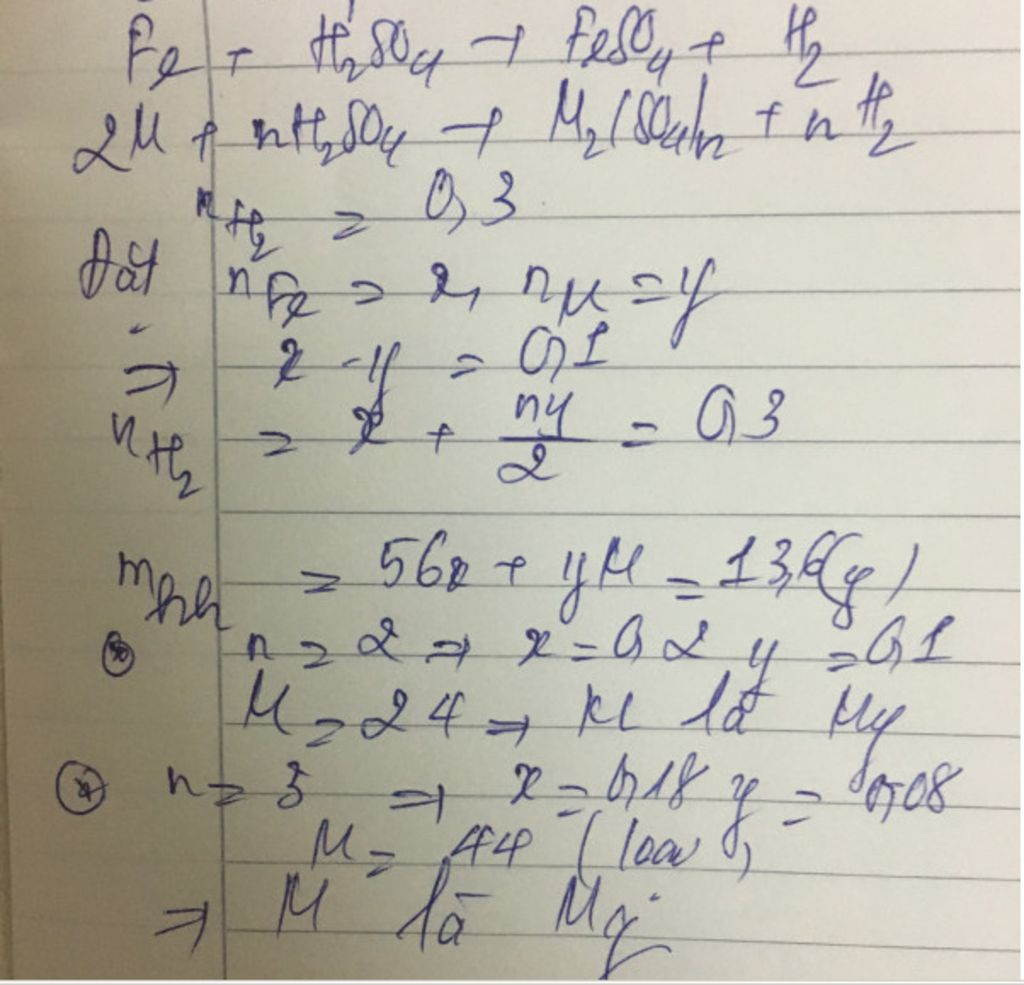 Fe + H₂SO₄ → FeSO₄ + H₂
2M + nH₂SO₄ → M₂(SO₄)n + nH₂
nH₂ = 0,3
Đặt nFe = x, nM = y
⇒ x - y = 0,1
nH₂ = x + ny/2 = 0,3
mhh = 56x + yM = 13,6(g)
* n = 2 ⇒ x = 0,2 y = 0,1
M = 24 ⇒ M là Mg
* n = 3 ⇒ x = 0,18 y = 0,08
M = 44 (loại)
⇒ M là Mg